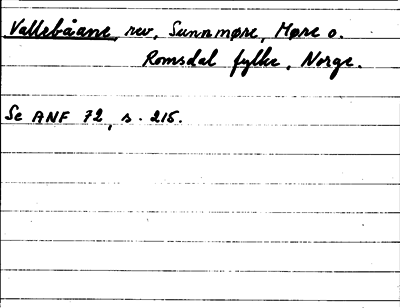 Vallebåane, rev, Sunnmøre, Møre o.
Romsdal fylke, Norge.
Se ANF 72, s. 215.